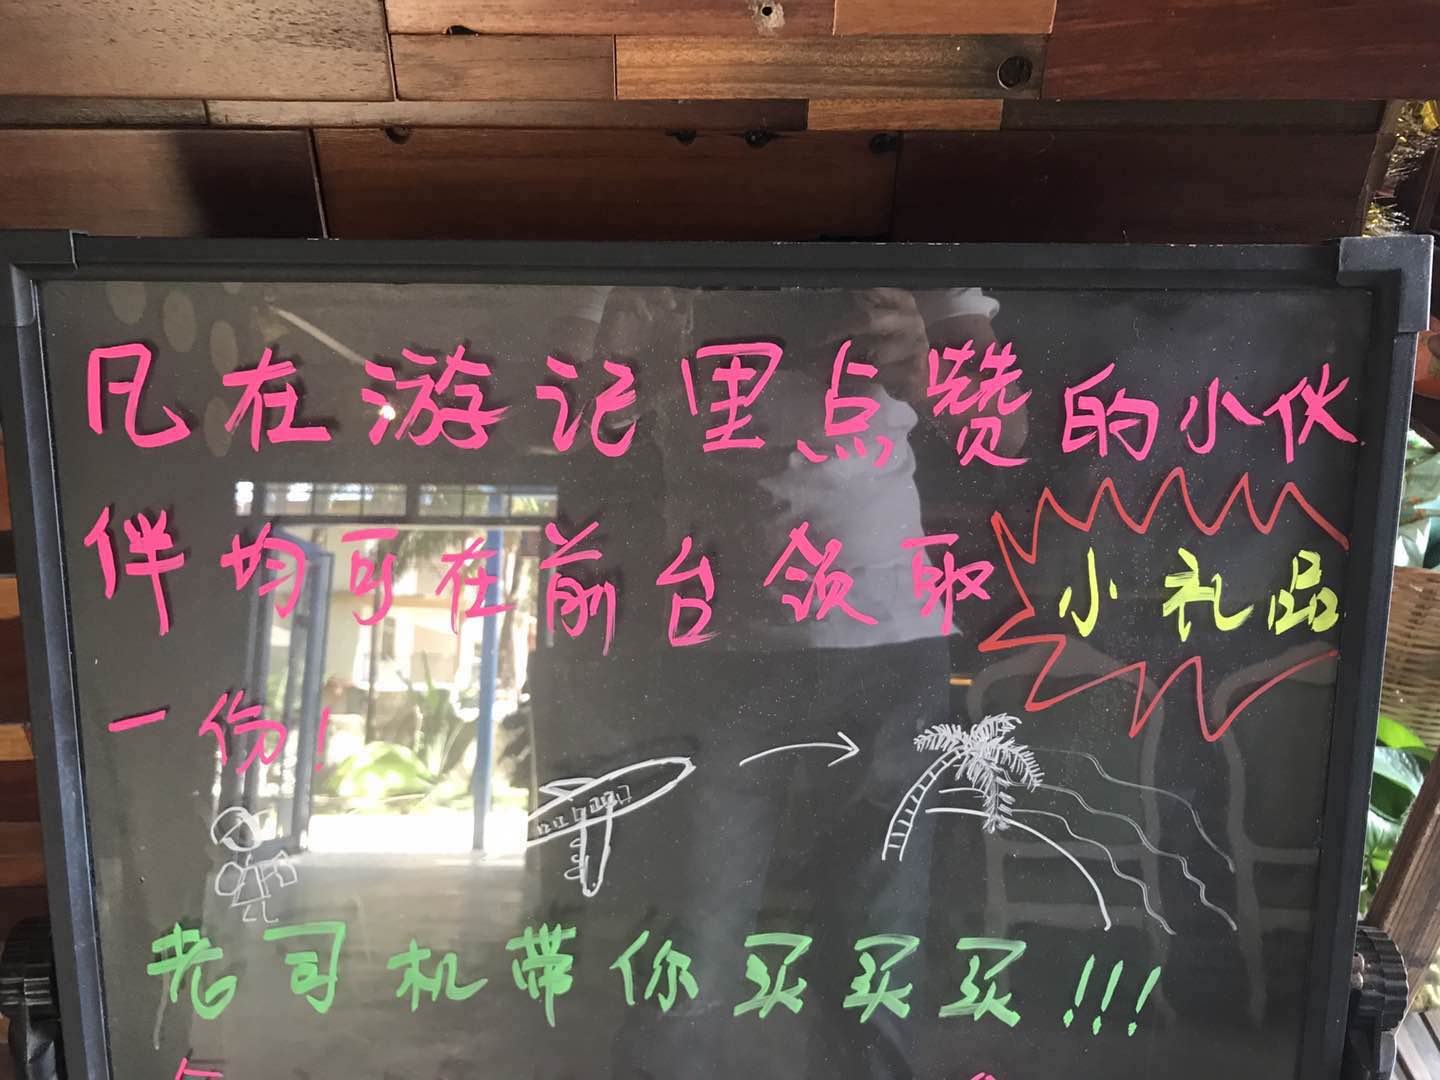 凡在游记里点赞的小伙
伴均可在前台领取小礼品
一份!
老司机带你买买买!!!